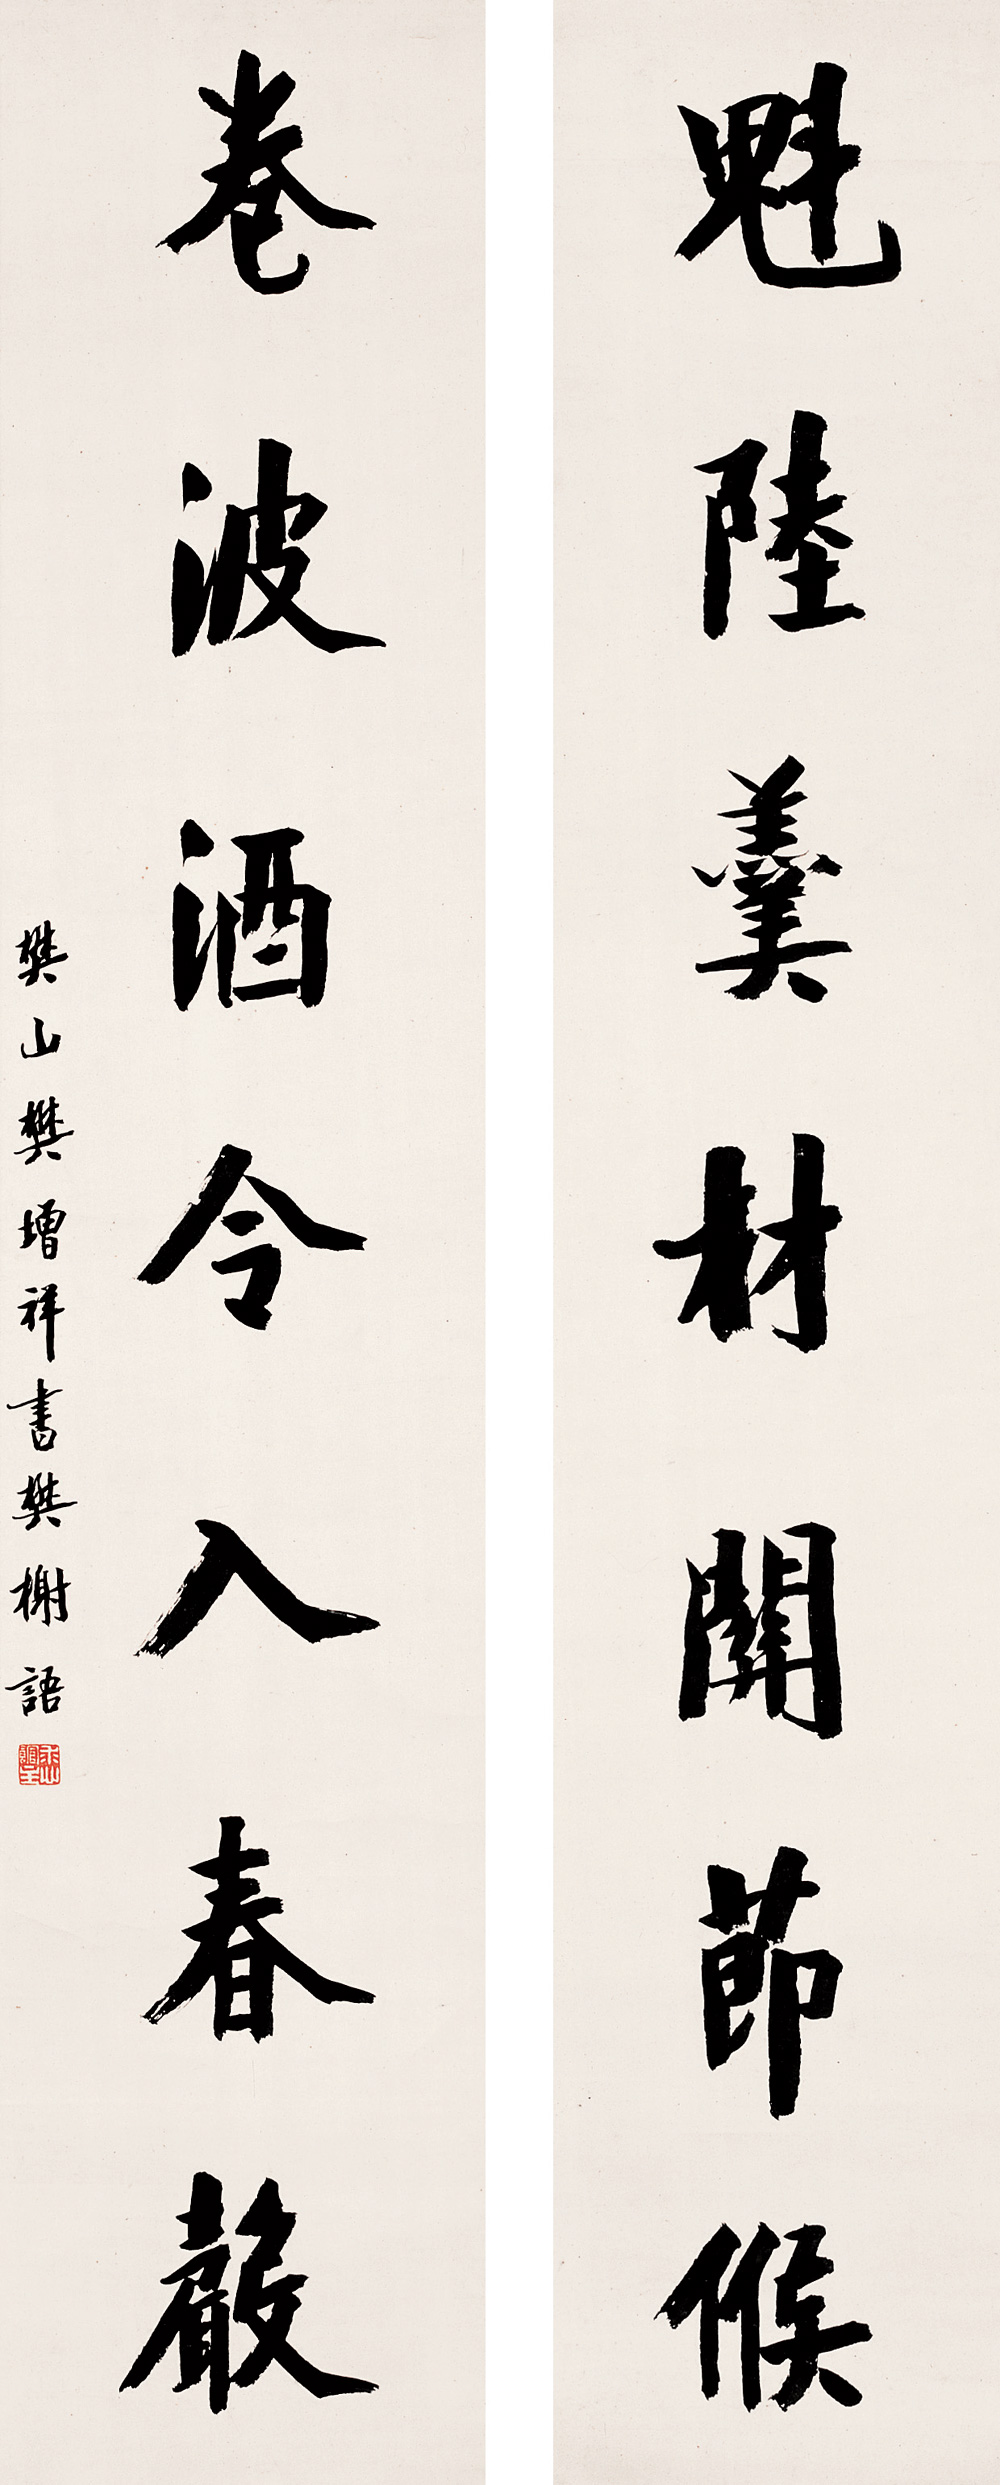 魁陸羹材關節候
卷波酒令入春嚴
樊山樊增祥書樊榭語